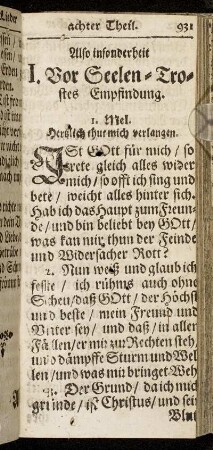 achter Theil. 931
Also insonderheit
I. Vor Seelen-Tro-
stes Empfindung.
1. Mel.
Hertzlich thut mich verlangen.
ISt GOtt für mich / so
trete gleich alles wider
mich / so offt ich sing und
bete / weicht alles hinter sich.
Hab ich das Haupt zum Freun-
de / und bin beliebt bey GOtt /
was kan mir thun der Feinde
und Widersacher Rott?
2. Nun weiß und glaub ich
feste / ich rühms auch ohne
Scheu / daß GOtt / der Höchst
und beste / mein Freund und
Vater sey / und daß / in aller
Fällen / er mir zu Rechten steh /
und dämpffe Sturm und Wel-
len / und was mir bringet Weh
3. Der Grund / da ich mich
gründe / ist Christus / und sein
Blut